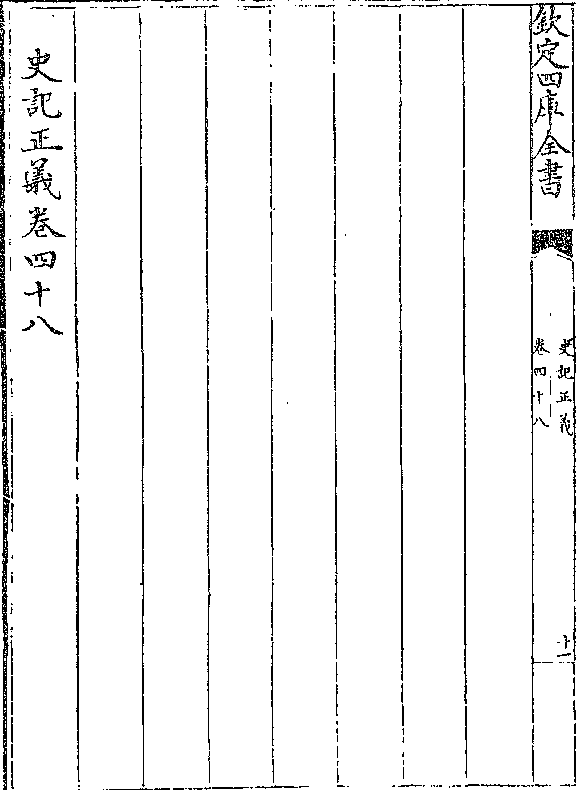 欽定四庫全書
史記正義
卷四十八
十一
史記正義卷四十八